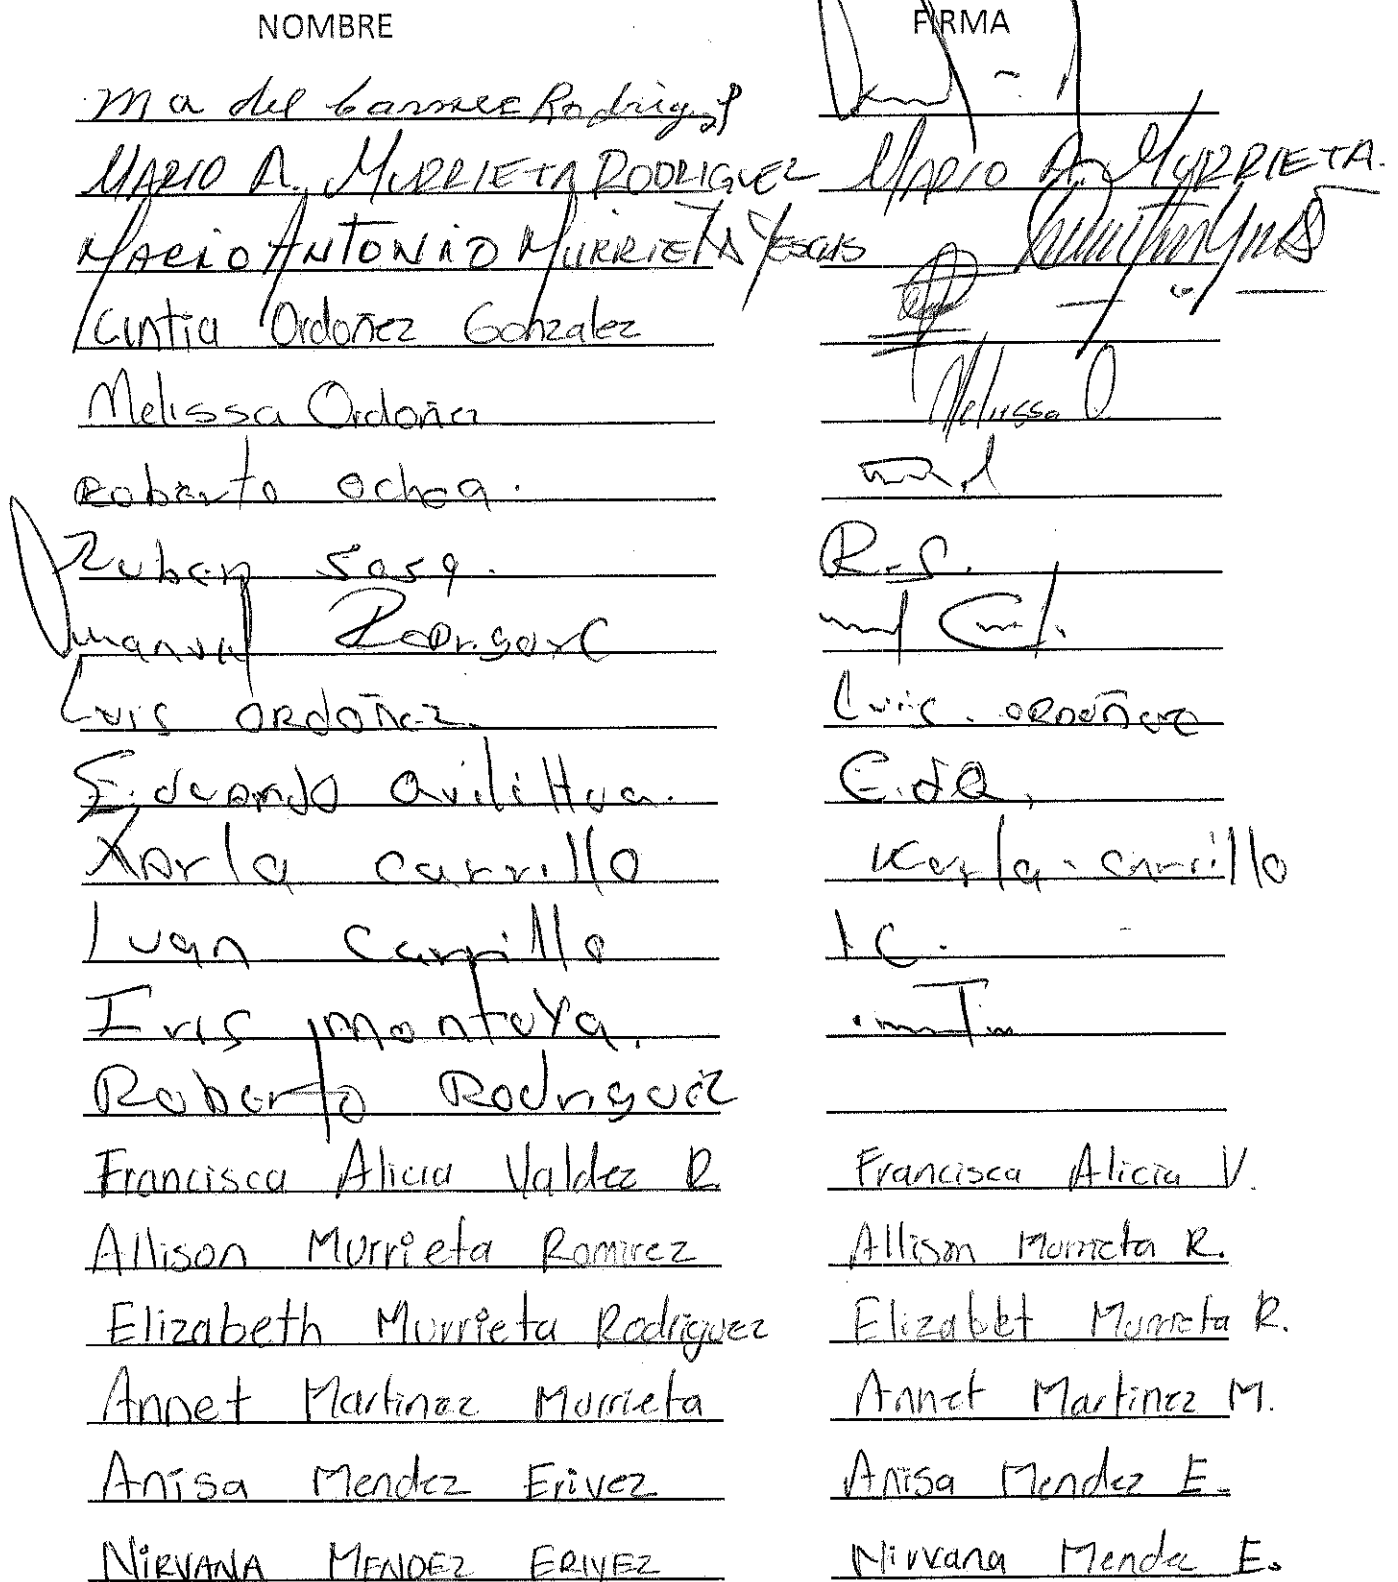 NOMBRE FIRMA
Ma del Carmen Rodriguez
MARIO A. MURRIETA RODRIGUEZ MARIO A. MURRIETA.
MARIO ANTONIO MURRIETA YESCAS
Cintia Ordoñez Gonzalez
Melissa Ordoñez Melissa O
Roberto Ochoa.
Ruben Sosa. R.S.
Manuel
Luis ORDOÑEZ. Luis. ORDOÑEZ
Eduardo E.d.Q.
Karla Carrillo Karla - Carrillo
Ivan Carrillo I C.
Iris Montoya.
Roberto Rodriguez
Francisca Alicia Valdez R. Francisca Alicia V.
Allison Murrieta Ramirez Allison Murrieta R.
Elizabeth Murrieta Rodriguez Elizabet Murrieta R.
Annet Martinez Murrieta Annet Martinez M.
Anisa Mendez Erivez Anisa Mendez E.
NIRVANA MENDEZ ERIVEZ Nirvana Mendez E.